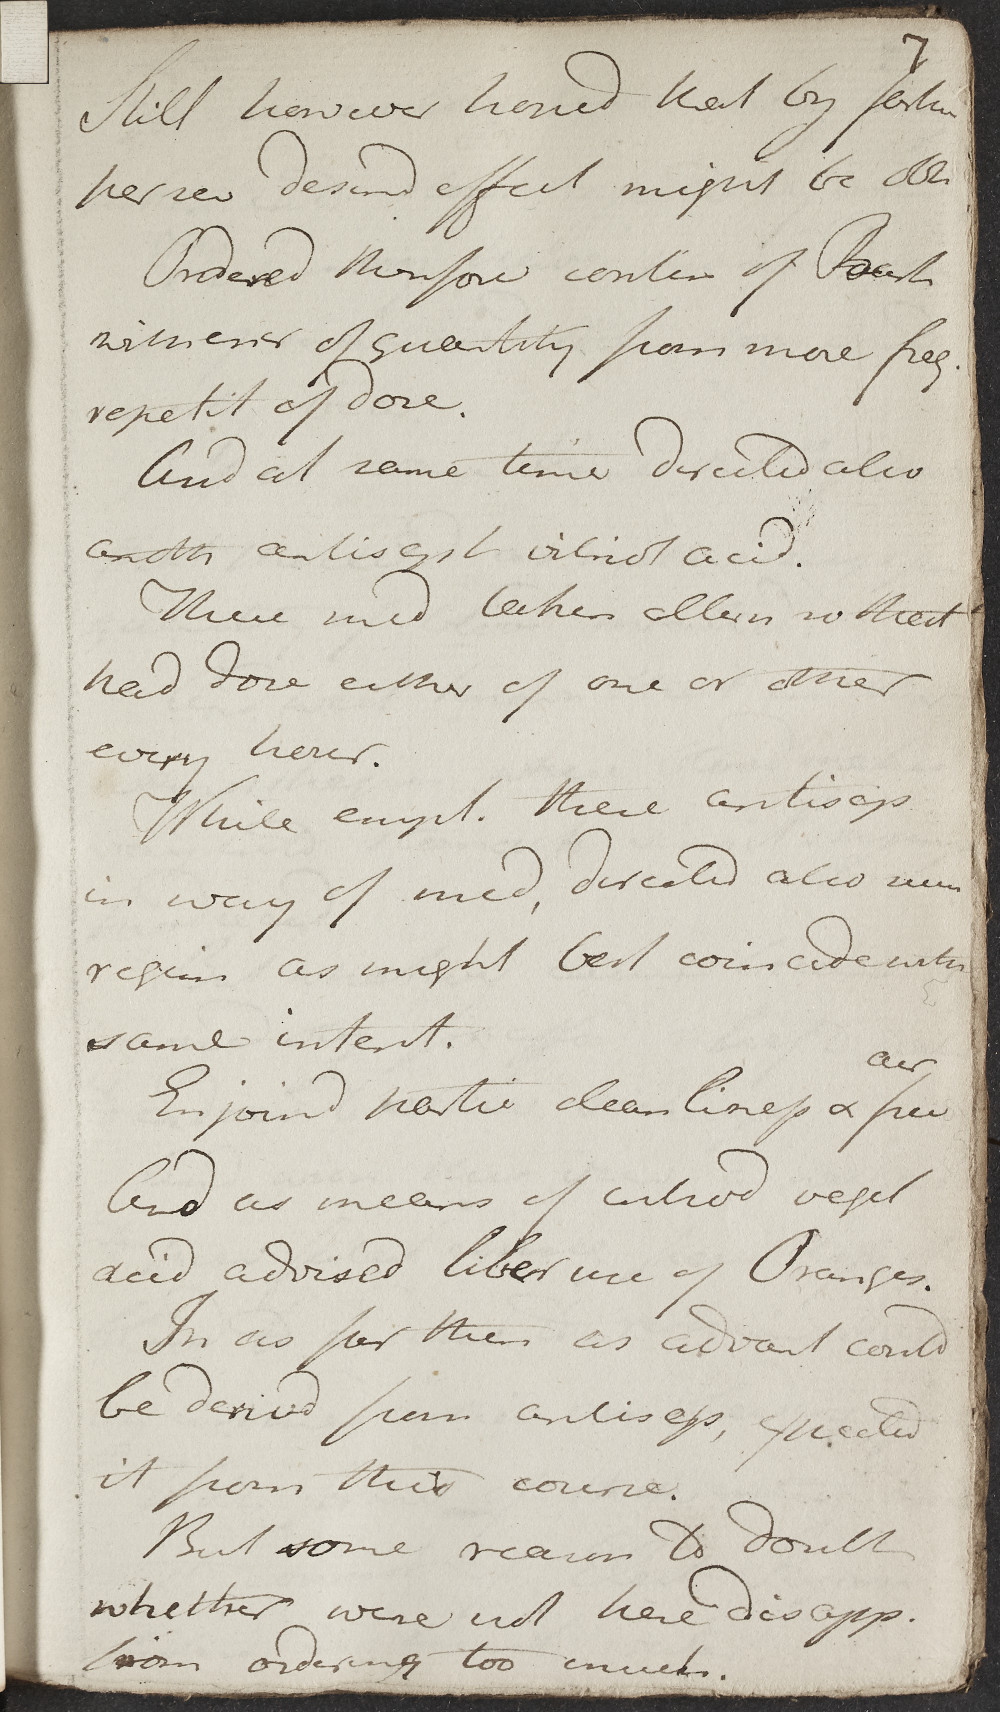 7
Still however hoped that by farther
persev desired effect might be obt
Ordered therefore contin of Bark
w increas of quantity from more freq.
repetit of dose.
And at same time directed also
anoth antisept vitriol acid.
These med taken altern so that
had dose either of one or other
every hour.
While empl. these antisep
in way of med, directed also such
regim as might best coincide with
same intent.
Enjoind partic cleanliness & free air
And as means of introd veget
acid advised liber use of Oranges.
In as far then as advant could
be derived from antisep, expected
it from this course.
But some reason to doubt
whether were not here disapp.
from ordering too much.